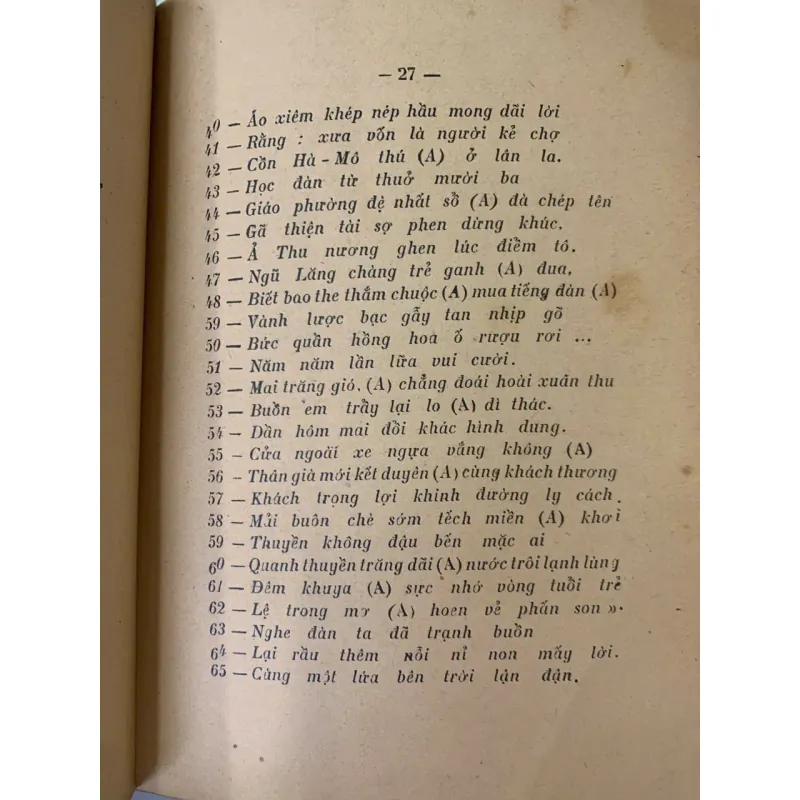 — 27 —
40 — Áo xiêm khép nép hầu mong dãi lời
41 — Rằng : xưa vốn là người kẻ chợ
42 — Cồn Hà - Mô thú (A) ở lân la.
43 — Học đàn từ thuở mười ba
44 — Giáo phường đệ nhất sổ (A) đà chép tên
45 — Gã thiện tài sợ phen dừng khúc.
46 — Ả Thu nương ghen lúc điểm tô.
47 — Ngũ Lăng chàng trẻ ganh (A) đua,
48 — Biết bao the thắm chuộc (A) mua tiếng đàn (A)
59 — Vành lược bạc gẫy tan nhịp gõ
50 — Bức quần hồng hoá ố rượu rơi ...
51 — Năm năm lần lữa vui cười.
52 — Mai trăng gió. (A) chẳng đoái hoài xuân thu
53 — Buồn em trẩy lại lo (A) dì thác.
54 — Dần hôm mai đồi khác hình dung.
55 — Cửa ngoài xe ngựa vắng không (A)
56 — Thân già mới kết duyên (A) cùng khách thương
57 — Khách trọng lợi khinh đường ly cách.
58 — Mải buôn chè sớm tếch miền (A) khơi
59 — Thuyền không đậu bến mặc ai
60 — Quanh thuyền trăng dãi (A) nước trôi lạnh lùng
61 — Đêm khuya (A) sực nhớ vòng tuổi trẻ
62 — Lệ trong mơ (A) hoen vẻ phấn son ».
63 — Nghe đàn ta đã trạnh buồn
64 — Lại rầu thêm nỗi nỉ non mấy lời.
65 — Cùng một lứa bên trời lận đận.